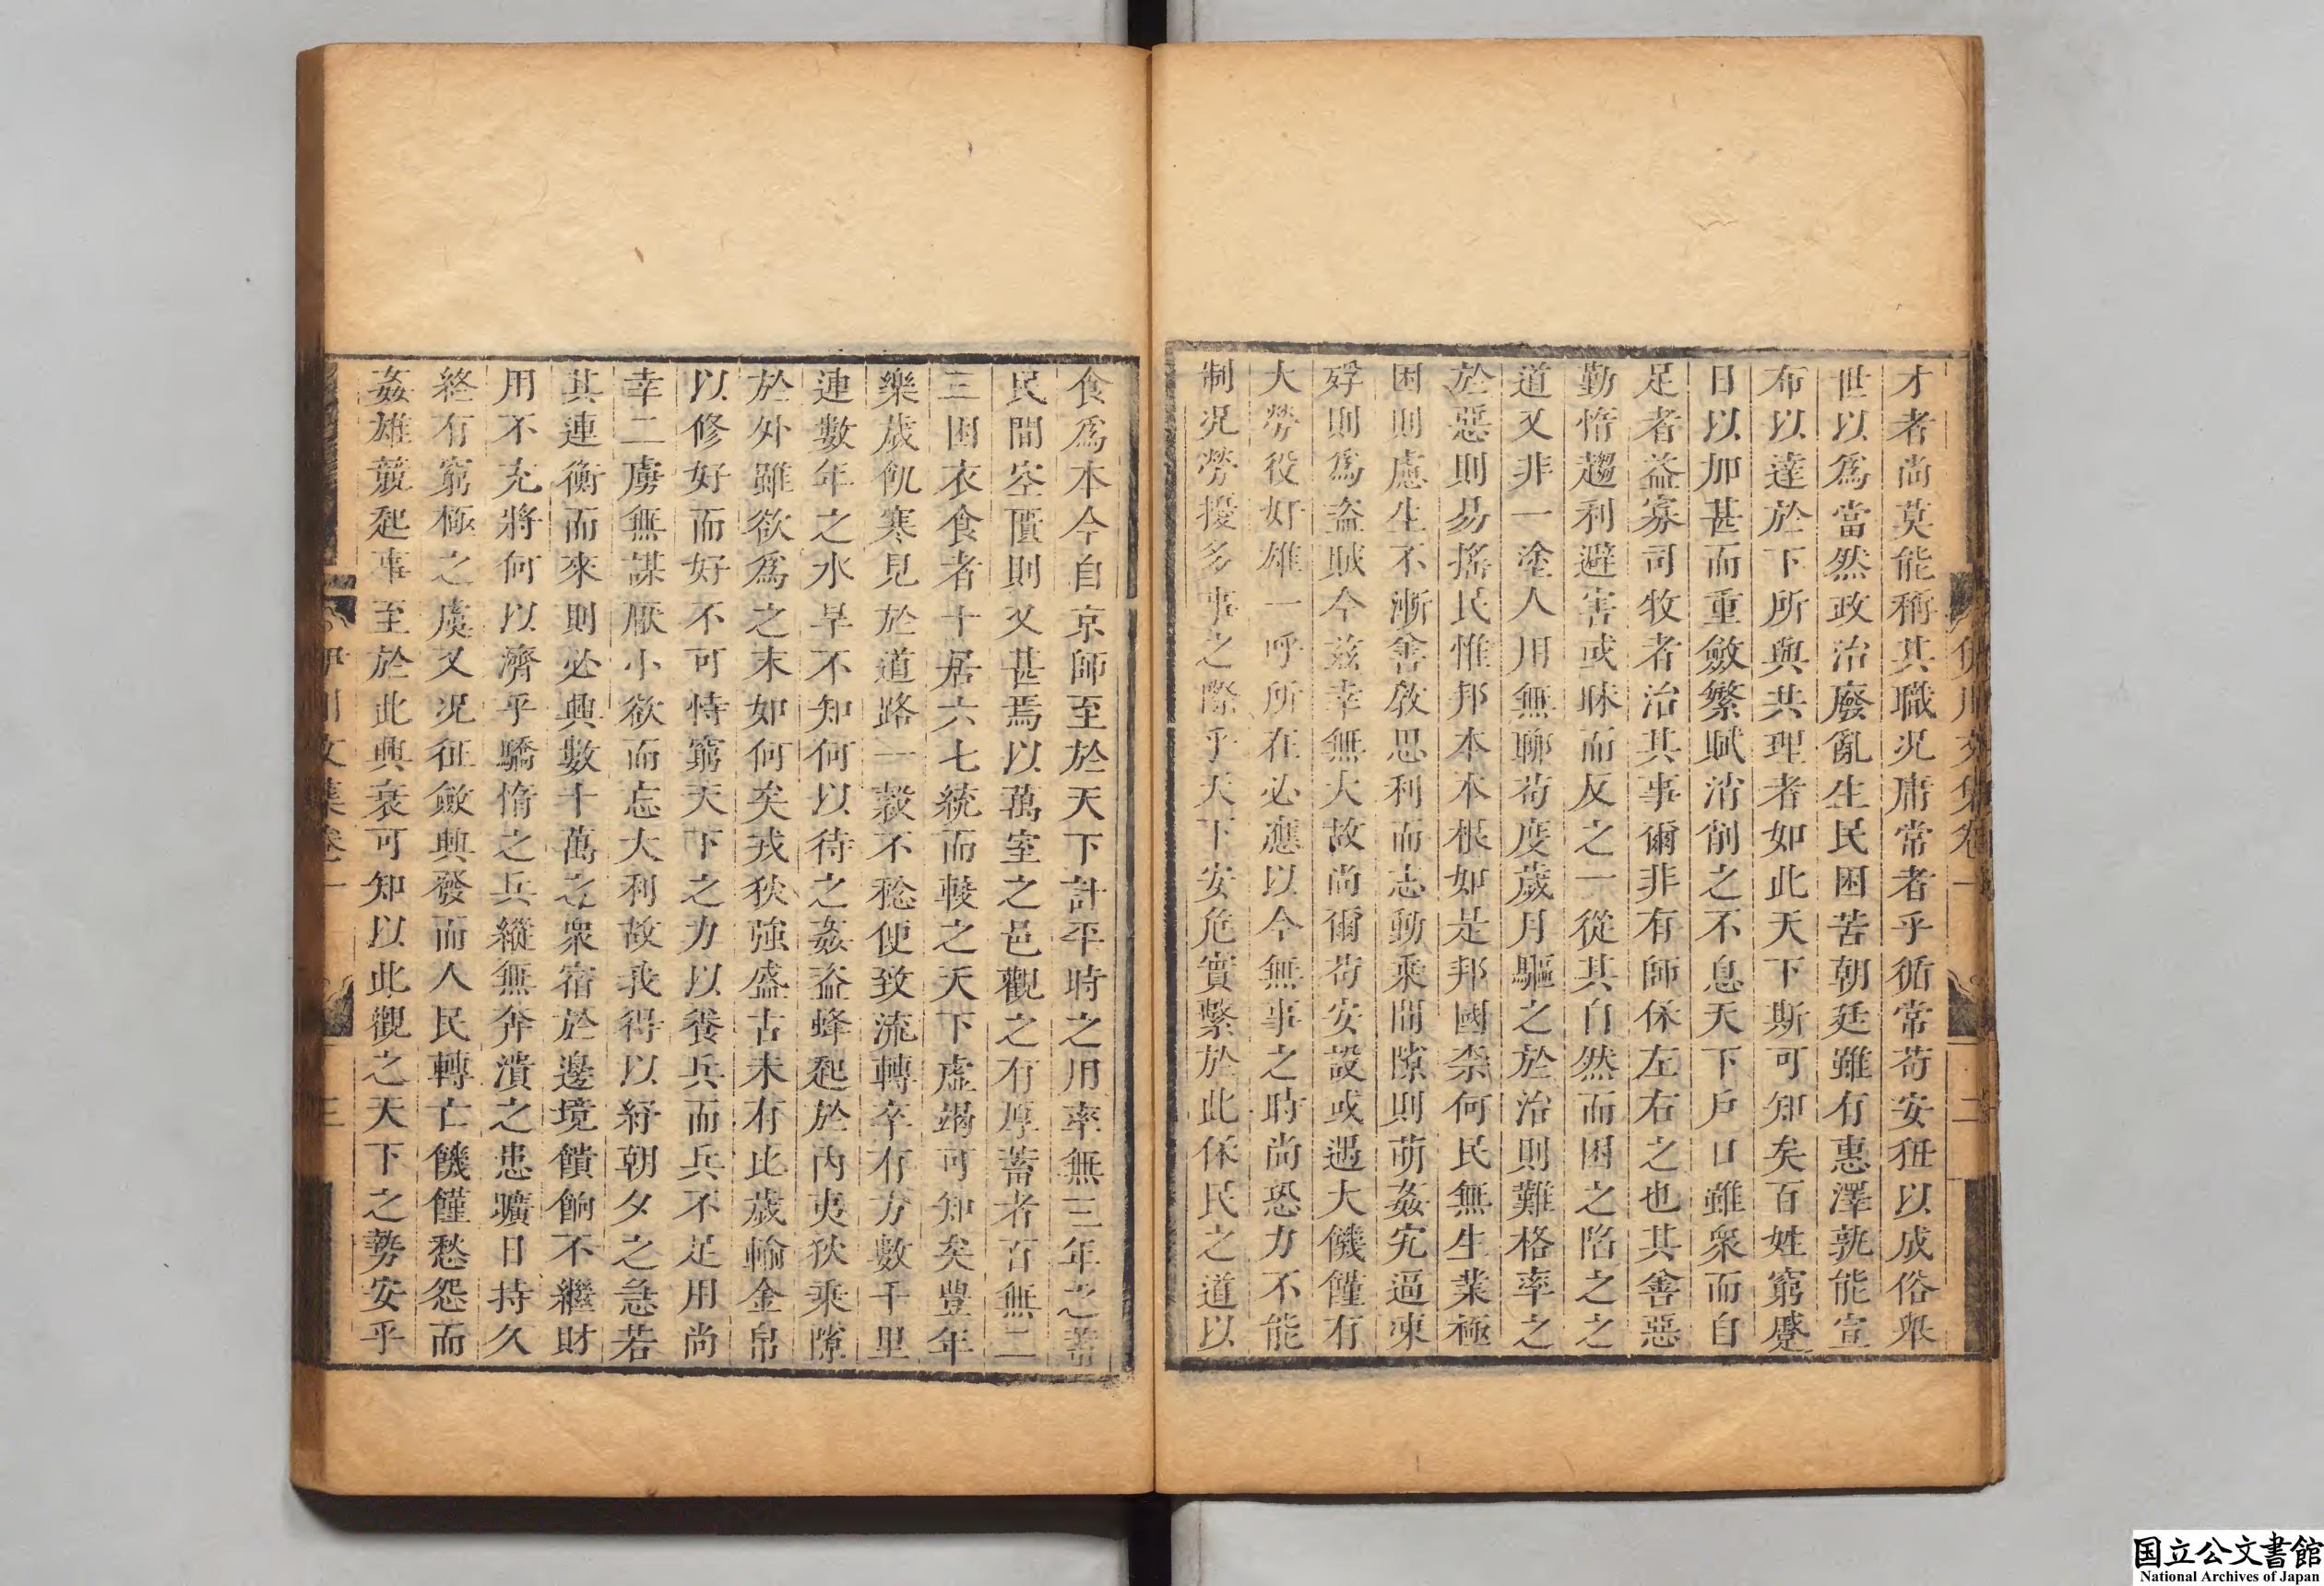 伊川文集卷一
二
才者尚莫能稱其職况庸常者乎循常苟安狃以成俗舉
世以爲當然政治廢亂生民困苦朝廷雖有惠澤孰能宣
布以達於下所與共理者如此天下斯可知矣百姓窮蹙
日以加甚而重斂繁賦消削之不息天下戶口雖衆而自
足者益寡司牧者治其事爾非有師保左右之也其善惡
勤惰趨利避害或昧而反之一從其自然而困之陷之之
道又非一塗人用無聊苟度歲月驅之於治則難格率之
於惡則易搖民惟邦本本根如是邦國柰何民無生業極
困則慮生不漸善教思利而志動乘間隙則萌姦宄逼凍
殍則爲盗賊今兹幸無大故尚爾苟安設或遇大饑饉有
大勞役奸雄一呼所在必應以今無事之時尚恐力不能
制况勞擾多事之際乎天下安危實繫於此保民之道以
食爲本今自京師至於天下計平時之用率無三年之蓄
民間空匱則又甚焉以萬室之邑觀之有厚蓄者百無二
三困衣食者十居六七統而較之天下虛竭可知矣豊年
樂歲飢寒見於道路一穀不稔便致流轉卒有方數千里
連數年之水旱不知何以待之姦盗蜂起於內夷狄乘隙
於外雖欲爲之末如何矣戎狄強盛古未有比歲輸金帛
以修好而好不可恃窮天下之力以養兵而兵不足用尚
幸二虜無謀厭小欲而忘大利故我得以紓朝夕之急若
其連衡而來則必興數十萬之衆宿於邊境饋餉不繼財
用不充將何以濟乎驕惰之兵縱無奔潰之患曠日持久
終有窮極之虞又况征斂興發而人民轉亡饑饉愁怨而
姦雄競起事至於此興衰可知以此觀之天下之勢安乎
伊川文集卷一
三
国立公文書館
National Archives of Japan